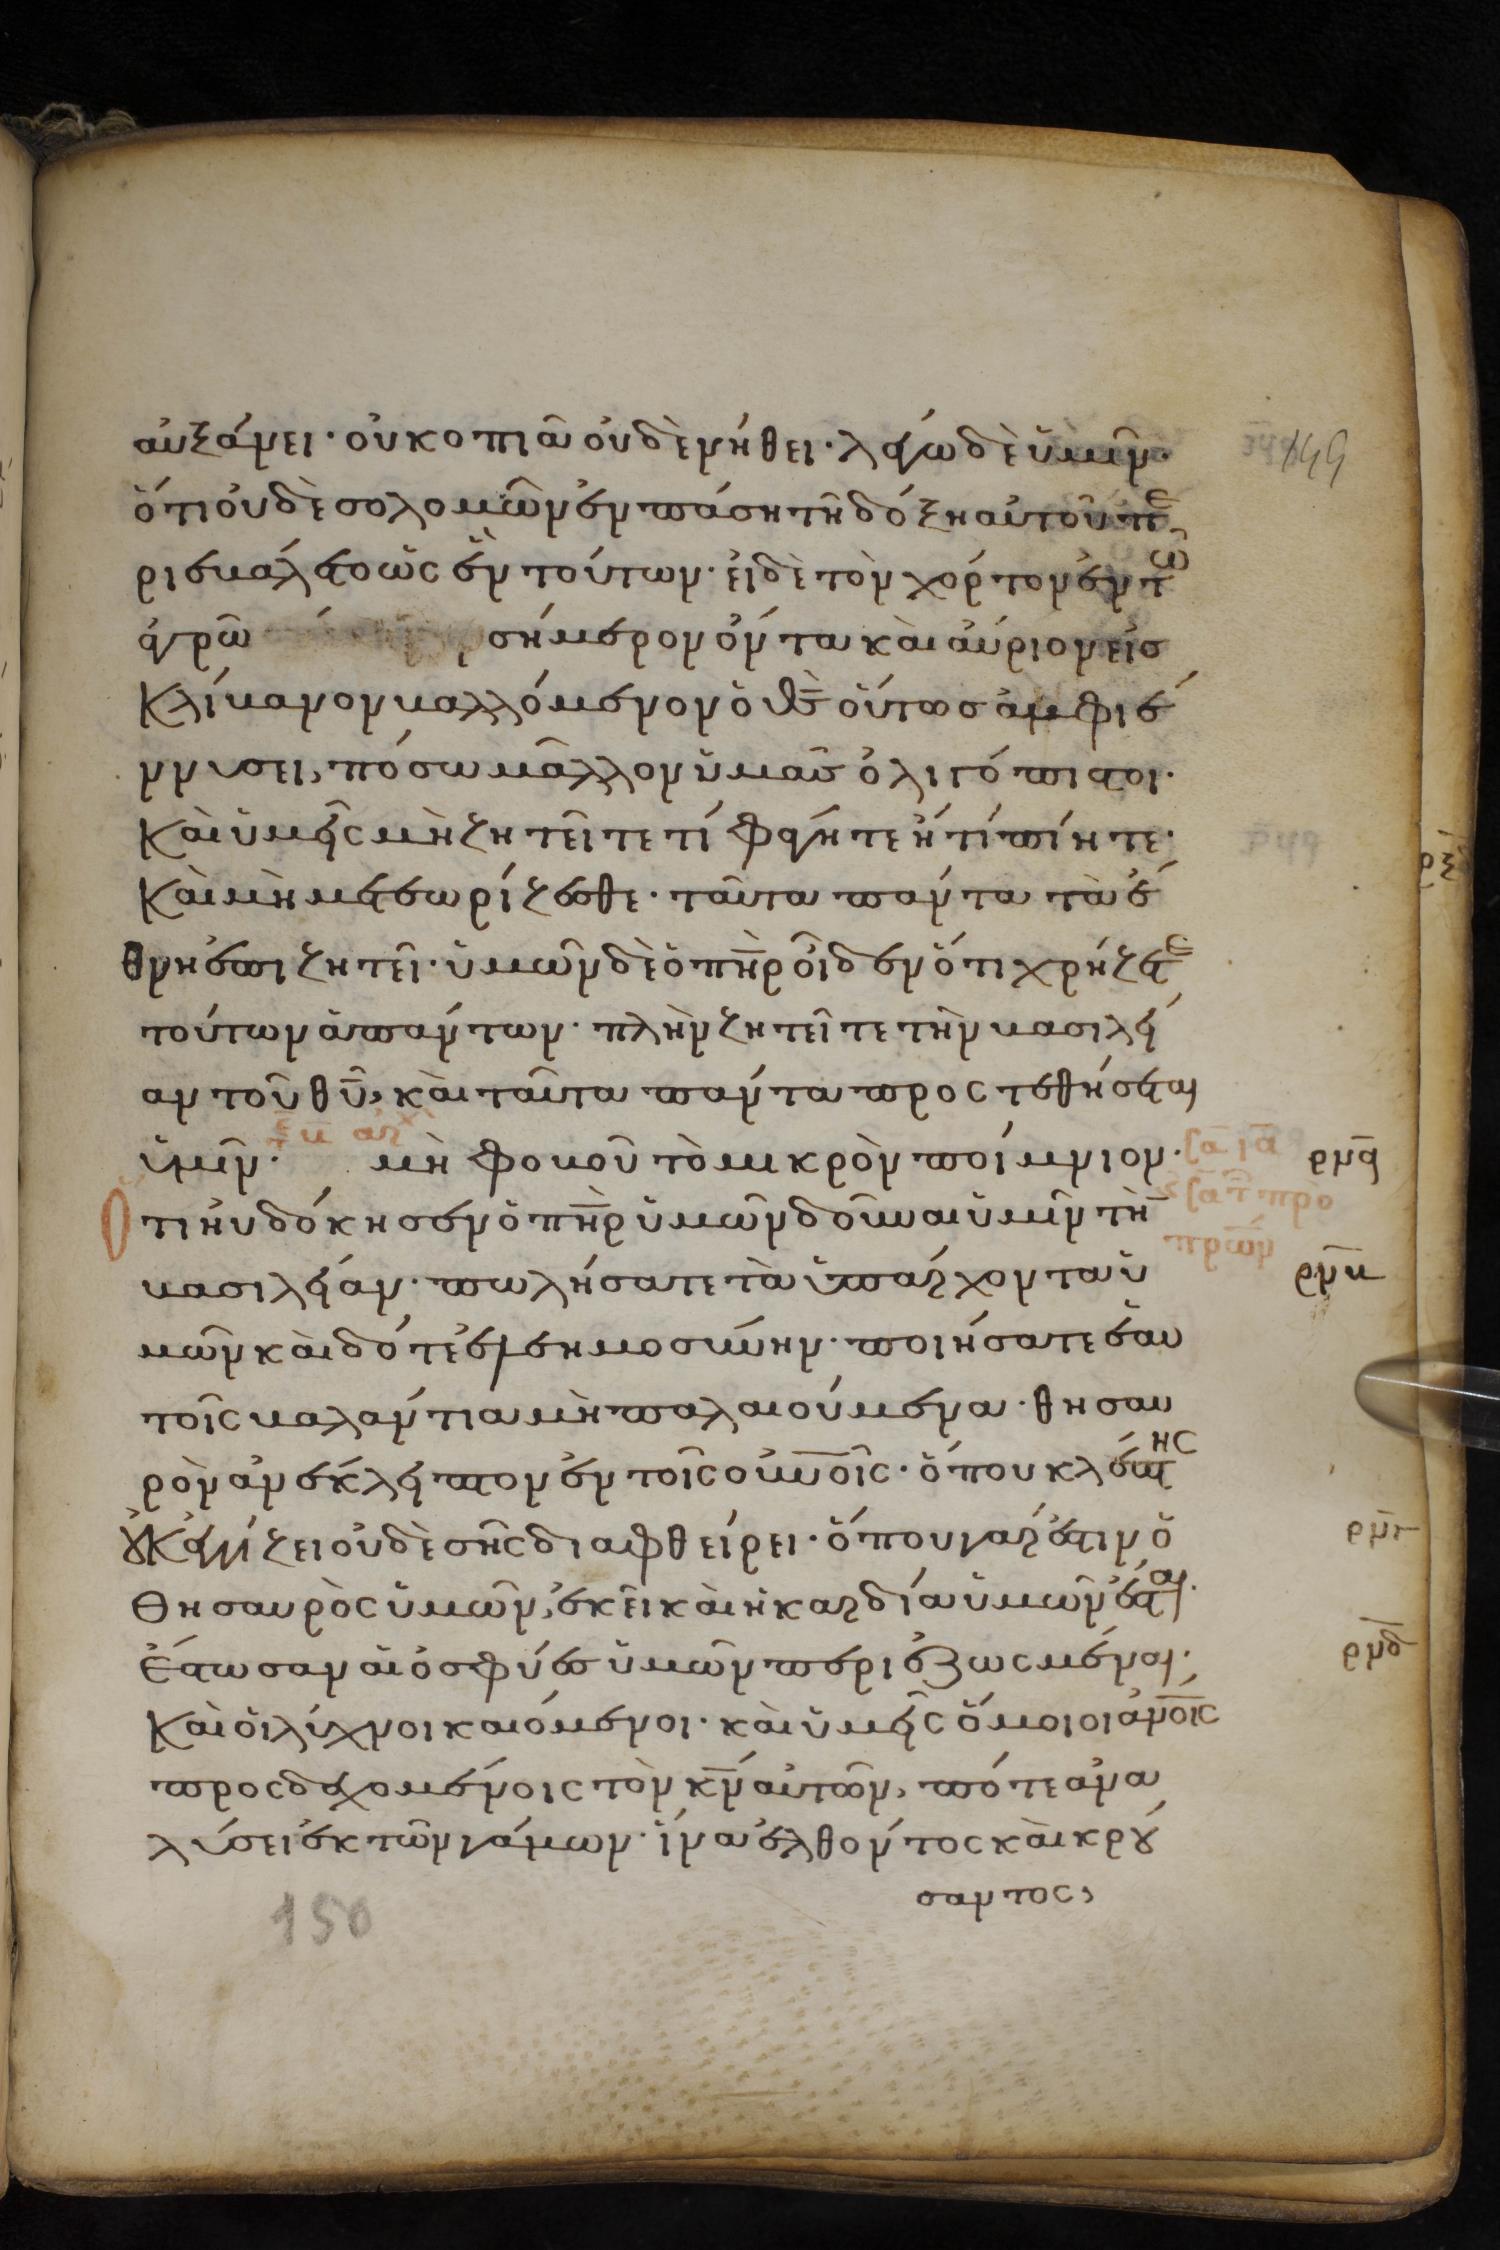 αὐξάνει· οὐ κοπιᾶ οὐδὲ νήθει· λέγω δὲ ὑμῖν·
ὅτι οὐδὲ σολομῶν ἐν πάσῃ τῇ δόξῃ αὐτοῦ πε
ριεβάλετο ὡς ἓν τούτων· εἰ δὲ τὸν χόρτον ἐν τῶ
ἀγρῶ σήμερον ὄντα καὶ αὔριον εἰς
κλίβανον βαλλόμενον ὁ θς̅ οὕτως ἀμφιέ
ννυσει, πόσω μᾶλλον ὑμᾶς ὀλιγόπιστοι·
Καὶ ὑμεῖς μὴ ζητεῖτε τί φάγητε ἢ τί πίητε·
Καὶ μὴ μετεωρίζεσθε· ταῦτα πάντα τὰ ἔ
θνη ἐπιζητεῖ· ὑμῶν δὲ ὁ πη̅ρ οἶδεν ὅτι χρήζετε
τούτων ἁπάντων· πλὴν ζητεῖτε τὴν βασιλεί
αν τοῦ θυ̅, καὶ ταῦτα πάντα προστεθήσεται
ὑμῖν· μὴ φοβοῦ τὸ μικρὸν ποίμνιον·
Ὅτι ηὐδόκησεν ὁ πη̅ρ ὑμῶν δοῦναι ὑμῖν τὴν
βασιλείαν· πωλήσατε τὰ ὑπάρχοντα ὑ
μῶν καὶ δότε ἐλεημοσύνην· ποιήσατε ἑαυ
τοῖς βαλάντια μὴ παλαιούμενα· θησαυ
ρὸν ἀνέκλειπτον ἐν τοῖς οὐνο̅ῖς· ὅπου κλέπτης
οὐκ ἐγγίζει οὐδὲ σῆς διαφθείρει· ὅπου γάρ ἐστιν ὁ
θησαυρὸς ὑμῶν, ἐκεῖ καὶ ἡ καρδία ὑμῶν ἔσται·
Ἔστωσαν αἱ ὀσφύες ὑμῶν περιεζωσμέναι·
Καὶ οἱ λύχνοι καιόμενοι· καὶ ὑμεῖς ὅμοιοι ἀνο̅ις
προσδεχομένοις τὸν κν̅ αὐτῶν, πότε ἀνα
λύσει ἐκ τῶν γάμων· ἵνα ἐλθόντος καὶ κρού
σαντος,
149
ρνα
ρνβ
ρνγ
ρνδ
150